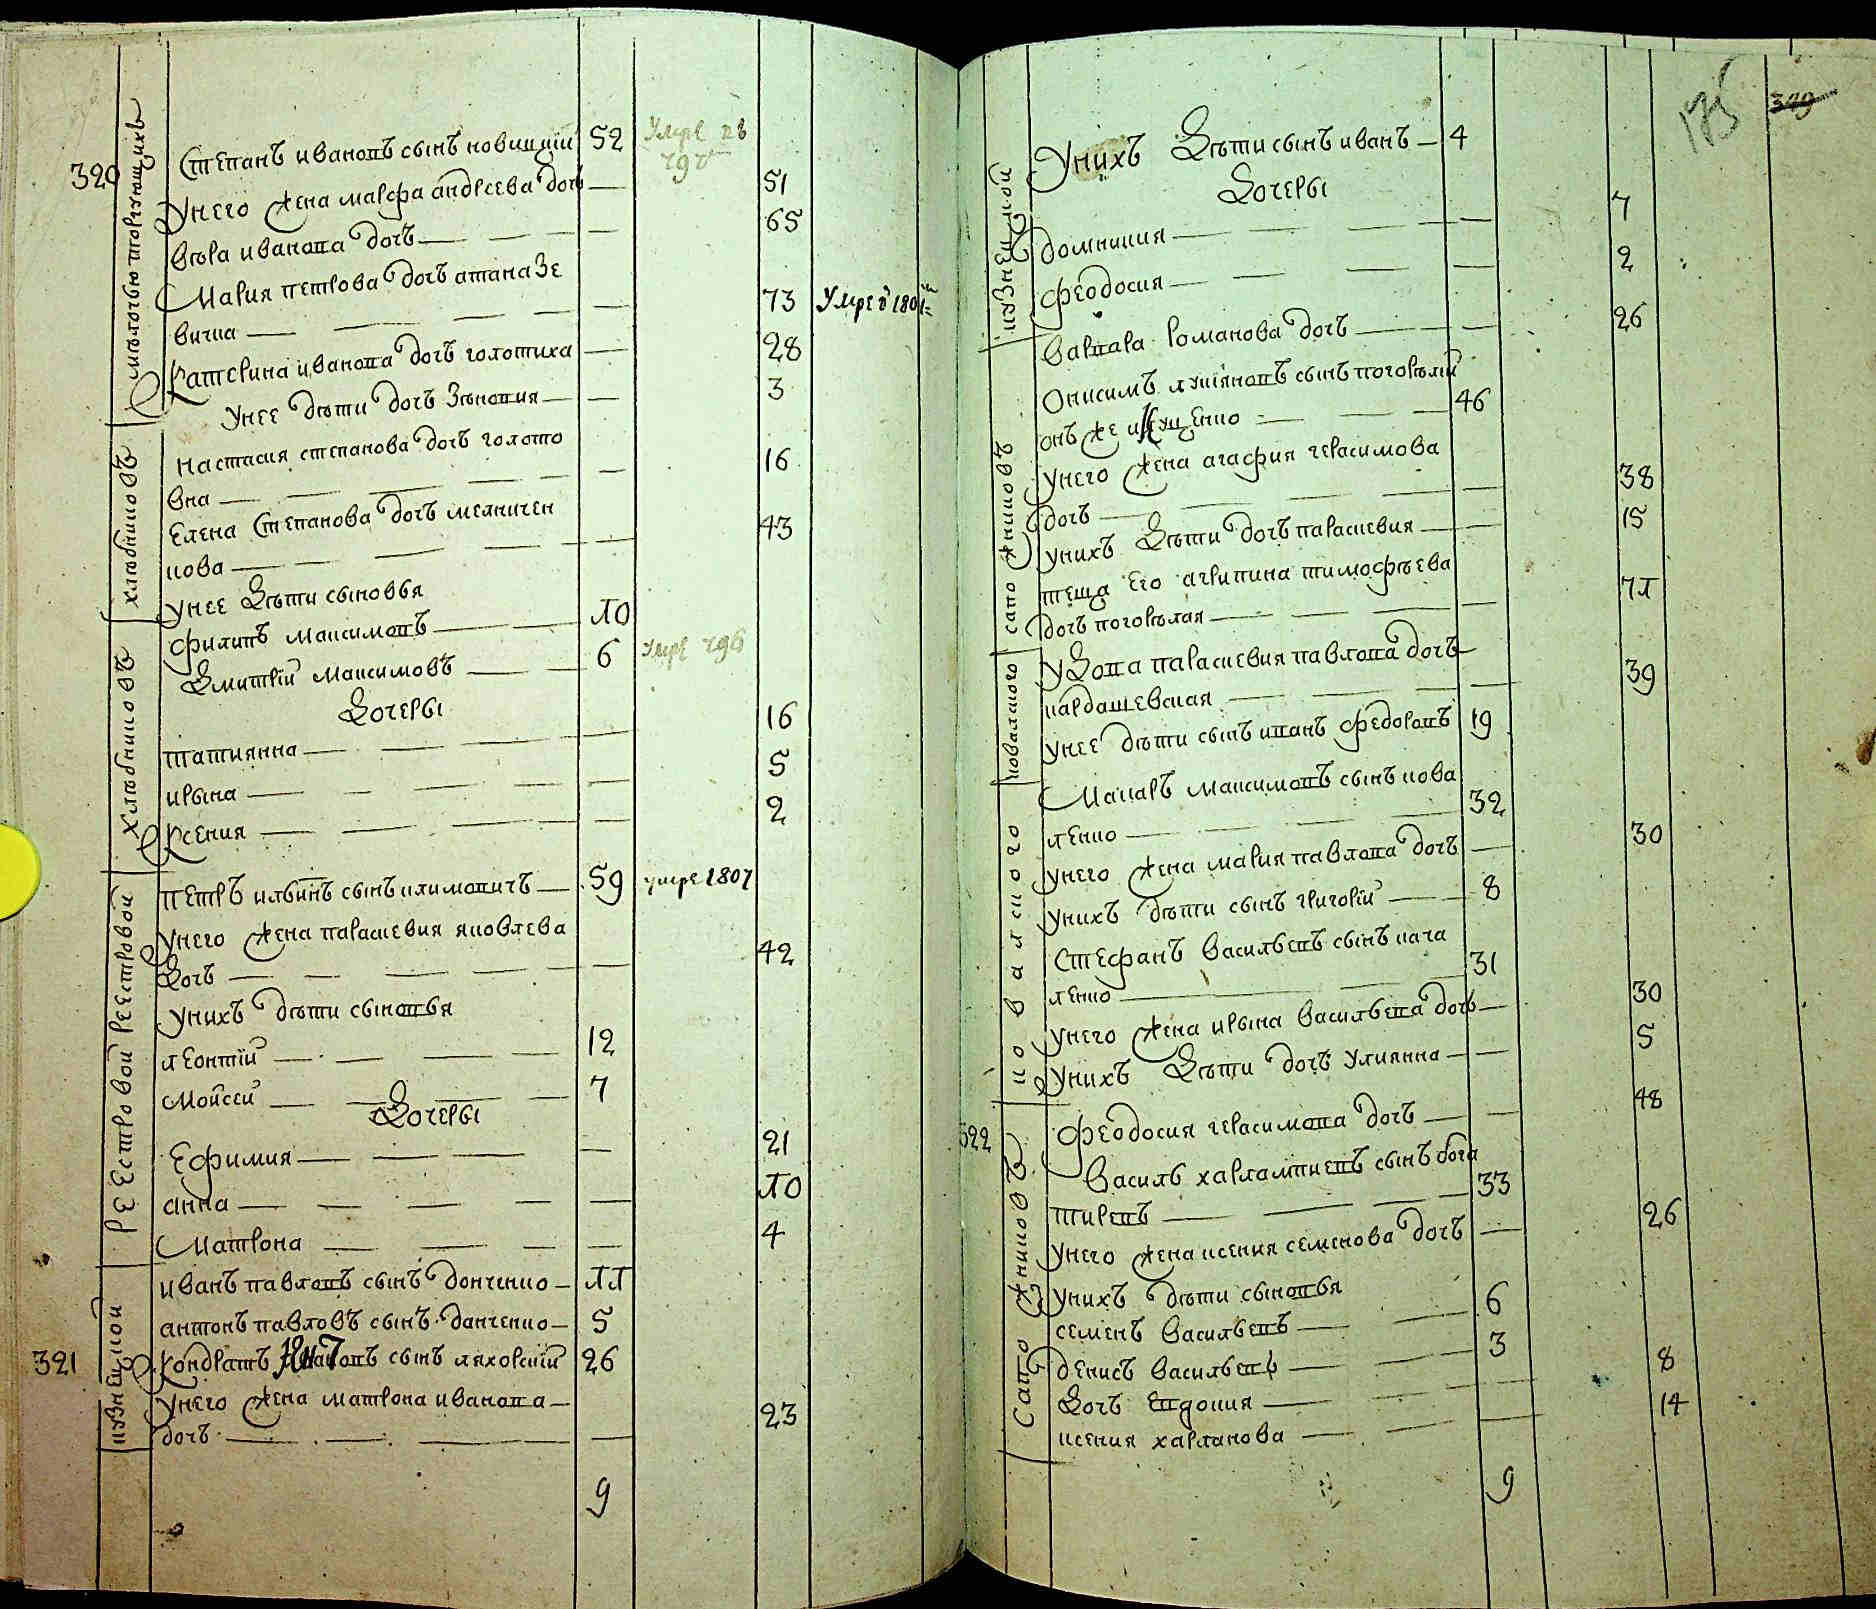 320
мѣлочью торгующихъ
Степанъ ивановъ сынъ новицкiй 52
Умре
У него жена марфа андреева дочь — 51
вѣра иванова дочь — 65
Мария петрова дочь атаназе
вичка — 73 Умре
Катерина иванова дочь голотиха — 28
У нее дѣти дочь Зѣновия — 3
хлѣбниковъ
настасия степанова дочь голото
вна — 16
Елена Степанова дочь мелничен
кова — 43
хлѣбниковъ
У нее Дѣти сыновья
филипъ максимовъ — 10
Дмитрiй максимовъ — 6 Умре 796
Дочеры
татиянна — 16
ирына — 5
Ксения — 2
реестровой реестровой
петръ ильинъ сынъ климовичъ — 59 умре 1807
У него жена параскевия яковлева
Дочь — 42
У нихъ дѣти сыновья
леонтiй — 12
моисей — 7
Дочеры
Ефимия — 21
анна — 10
Матрона — 4
кузнецкой
иванъ павловъ сынъ донченко — 11
антонъ павловъ сынъ данченко — 5
321
Кондратъ сынъ ляховскiй 26
У него жена матрона иванова —
дочь — 23
9
175
329
кузнецкой
У нихъ Дѣти сынъ иванъ — 4
Дочеры
домникия — 7
феодосия — 2
варвара романова дочь — 26
сапожниковъ
Онисимъ лукiяновъ сынъ погорѣлiй
онъ же и Куценко — 46
У него жена агафия герасимова
дочь — 38
У нихъ Дѣти дочь параскевия — 15
теща его агрипина тимофѣева
дочь погорѣлая — 71
ковалского
У Дова параскевия павлова дочь
кардашевская — 39
У нее дѣти сынъ иванъ федоровъ 19
ковалского
Макаръ максимовъ сынъ кова
ленко — 32
У него жена мария павлова дочь — 30
У нихъ дѣти сынъ григорiй — 8
Стефанъ васильевъ сынъ кача
ленко — 31
У него жена ирына васильева дочь — 30
У нихъ Дѣти дочь улиянна — 5
322
сапожниковъ
Феодосия герасимова дочь — 48
Василь харлампиевъ сынъ бога
тиревъ — 33
У него жена ксения семенова дочь — 26
У нихъ дѣти сыновья
семенъ васильевъ — 6
денисъ васильевъ — 3
Дочь Евдокия — 8
ксения харланова — 14
9